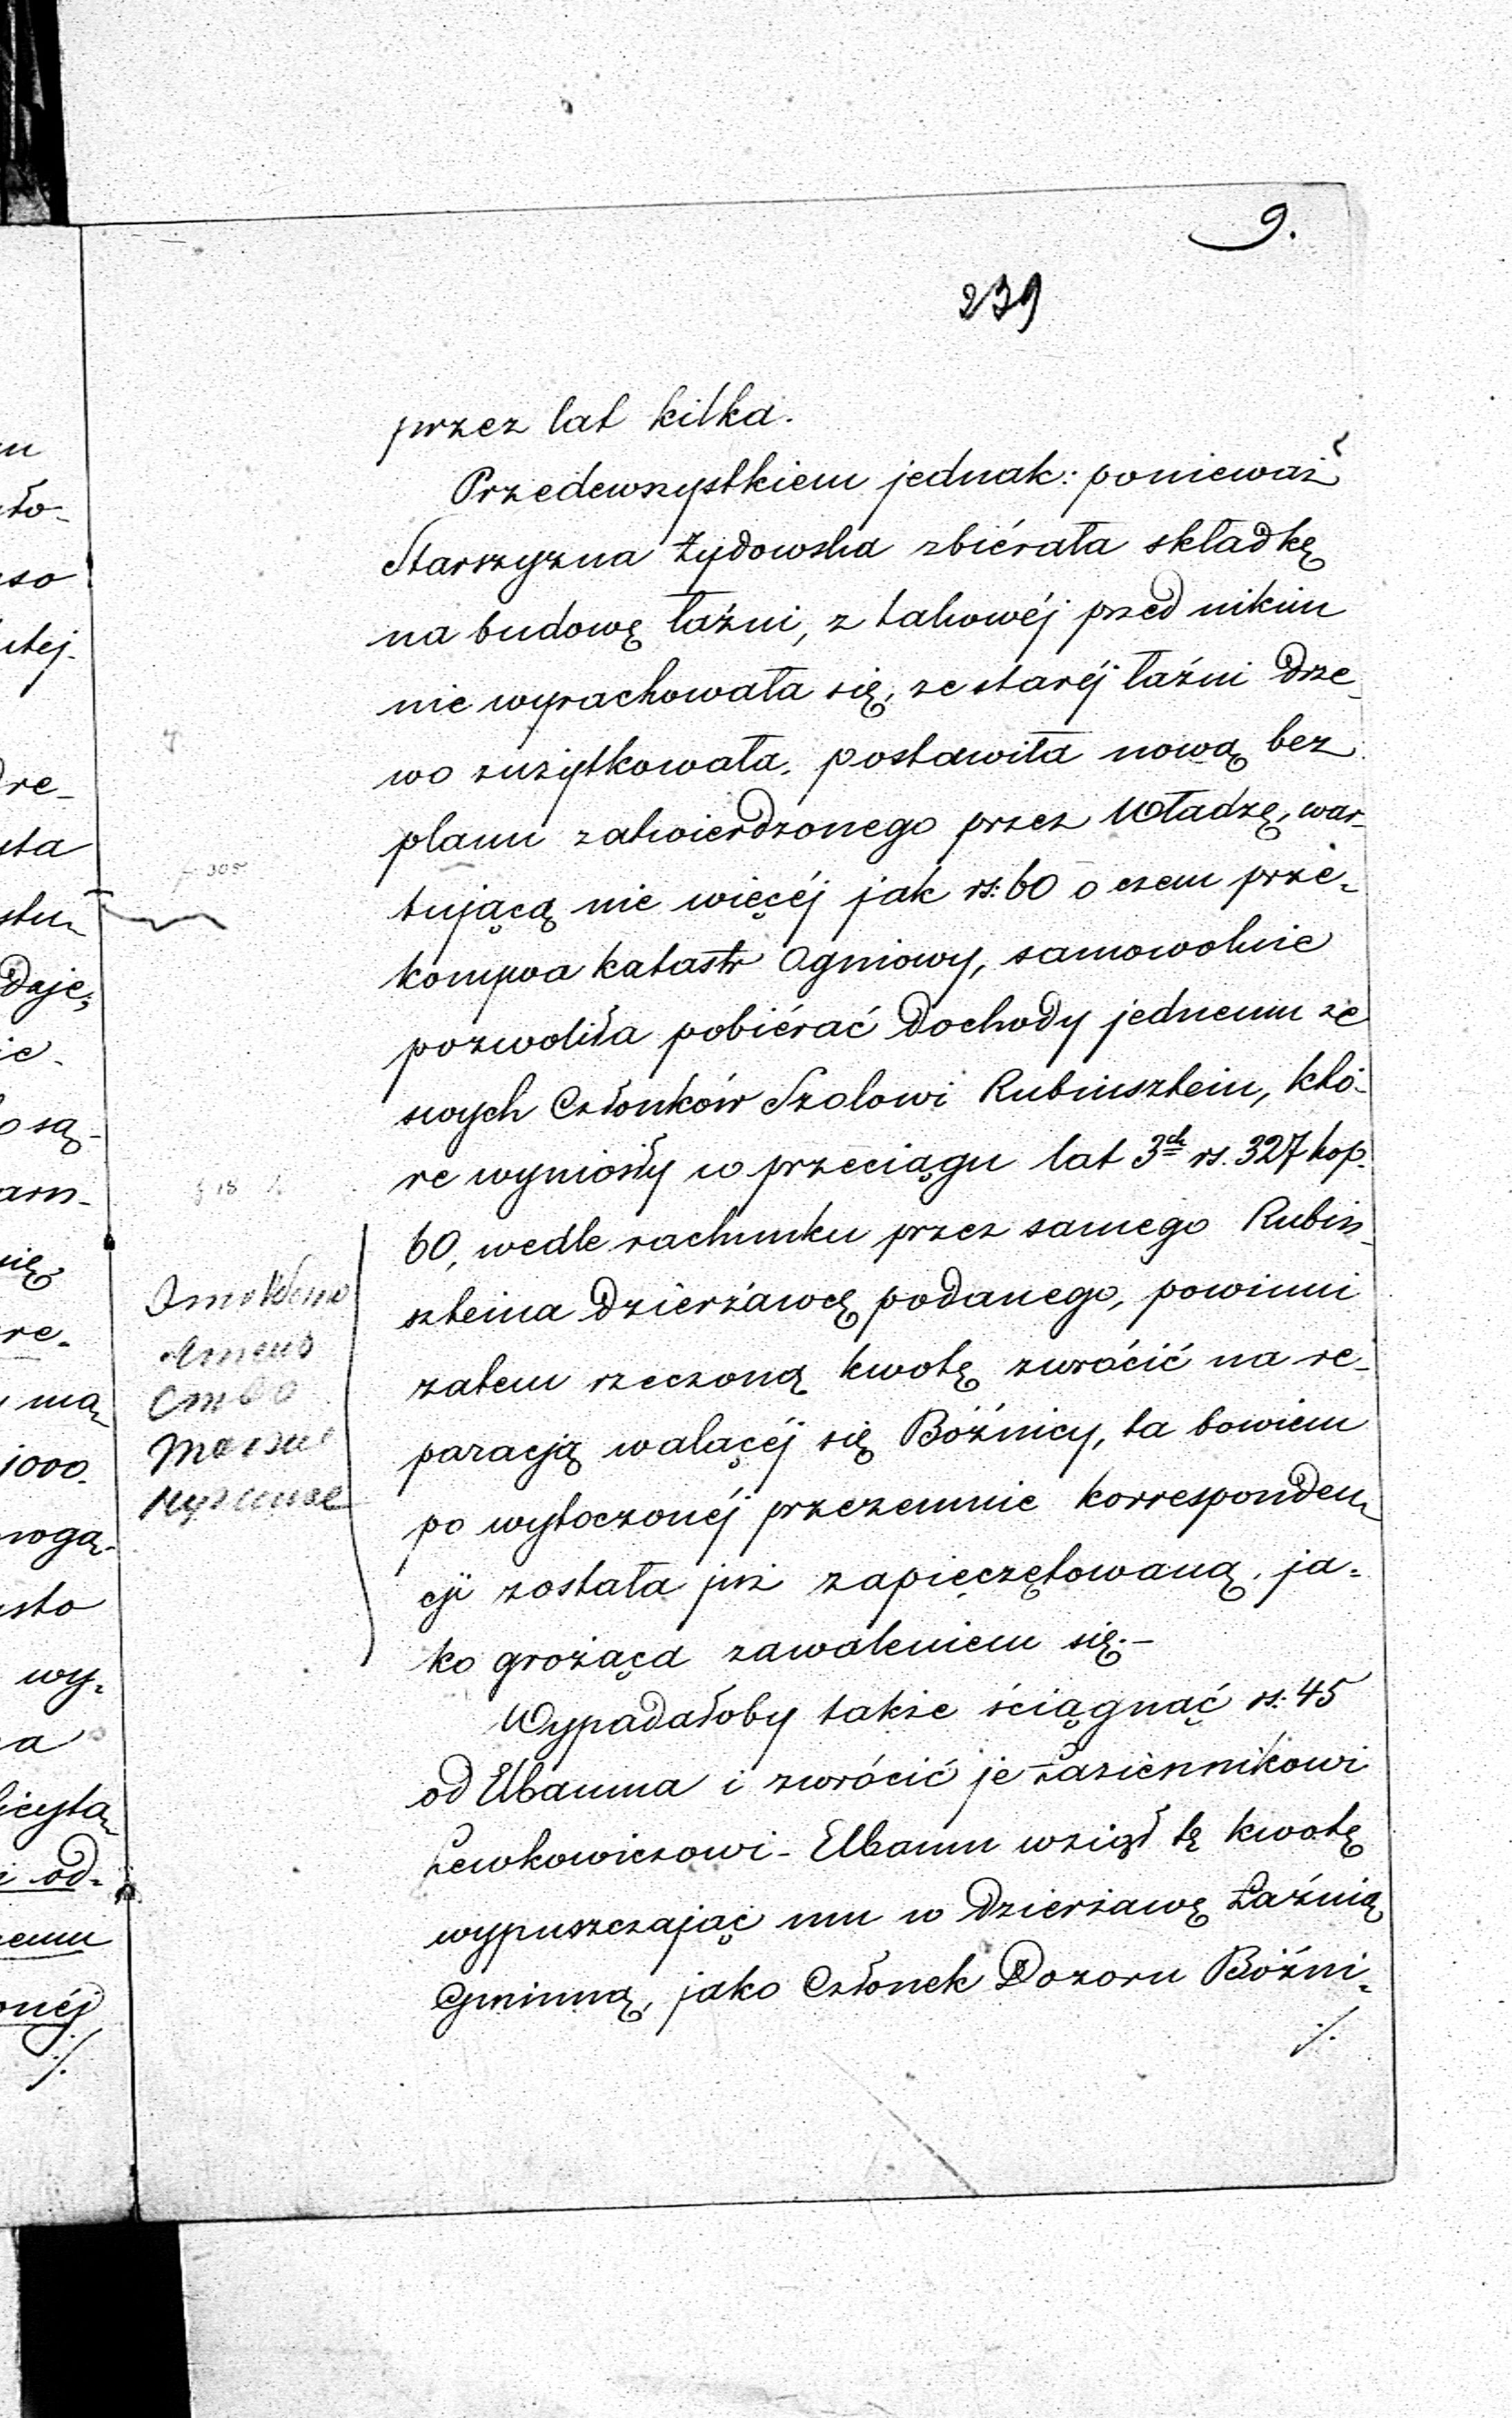 9.
239
przez lat kilka.
Przedewszystkiem jednak: ponieważ
Starszyzna żydowska zbiérała składkę
na budowę łaźni, z takowéj przed nikim
nie wyrachowała się, ze staréj łaźni drze-
wo zużytkowała, postawiła nową bez
planu zatwierdzonego przez Władzę, war-
tującą nie więcéj jak rs: 60 o czem prze-
konywa katastr Ogniowy, samowolnie
pozwoliła pobiérać dochody jednemu ze
swych Członków Szolowi Rubinsztein, któ-
re wyniosły w przeciągu lat 3ch rs. 327 kop.
60, wedle rachunku przez samego Rubin-
szteina dzierżawcę podanego, powinni
zatem rzeczoną kwotę zwrócić na re-
paracją walącéj się Bóźnicy, ta bowiem
po wytoczonéj przezemnie korresponden-
cji została już zapieczętowaną, ja-
ko grożąca zawaleniem się.-
Wypadałoby także ściągnąć rs: 45
od Elbauma i zwrócić je Łaziennikowi
Lewkowiczowi - Elbaum wziął tę kwotę
wypuszczając mu w dzierżawę Łaźnią
Gminną, jako Członek Dozoru Bóźni-
./.